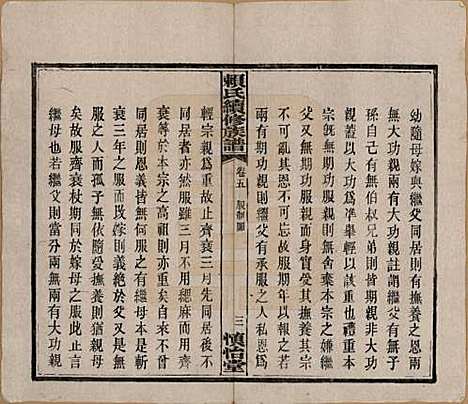 幼隨母嫁與繼父同居則有撫養之恩兩
無大功親兩有大功親註謂繼父無子
孫自己有無伯叔兄弟則親非大功
親蓋以大功爲準舉輕以該重本
宗旣無期功不爲舍棄本宗之嫌繼
父又無期功服而身實受其撫養其宗
不可減其恩不可缺故服期年以報之若
兩有期功親則繼父有承服之人私恩爲
賴氏續修族譜
卷五 服制圖
三
慎怡堂
輕宗親爲重故止齊衰三月先同居繼不
同居者亦然服雖三月不用而用齊
衰不等於衆而等於高祖則亦重矣
衰三年之服而從嫁則義絕於父又無
同居則恩義無何服之有繼母本是斬
無異其不去因隨愛撫養則猶親母
矣故服齊衰杖期同於嫁母之服止言
繼母也若繼父則當分兩無兩有大功親